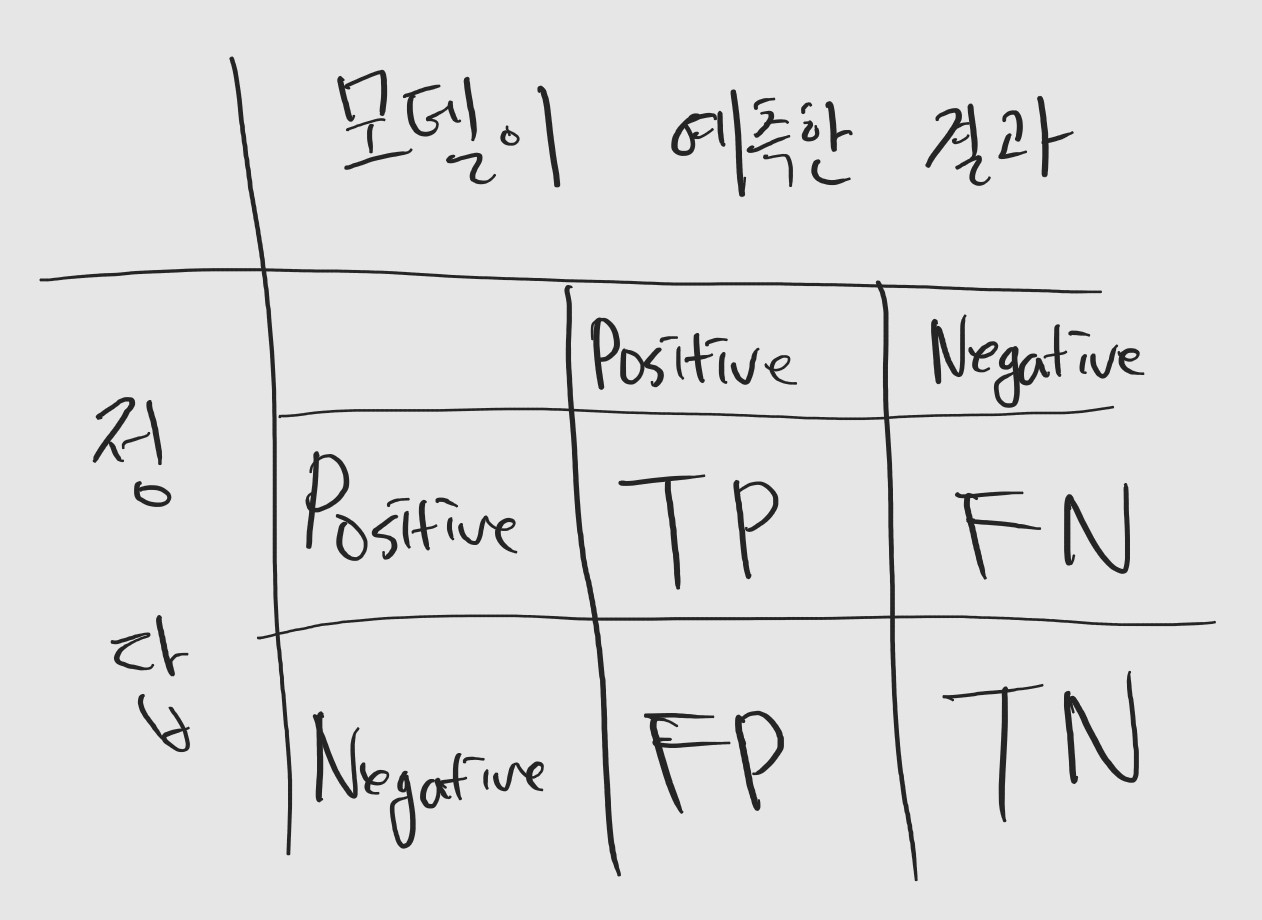 모델이 예측한 결과
Positive Negative
정답
Positive TP FN
Negative FP TN